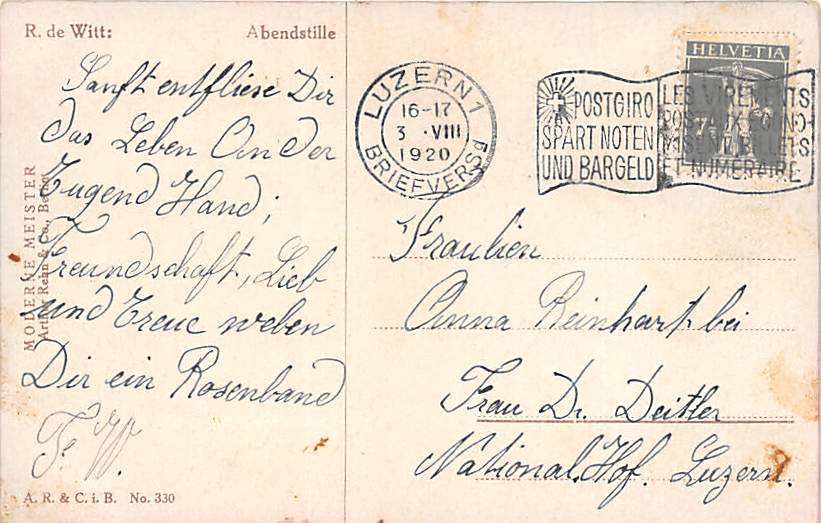 R. de Witt: Abendstille
Sanft entfliese Dir
das Leben An der
Tugend Hand;
Freundschaft, Lieb
und Treue weben
Dir ein Rosenband
F. W.
A. R. & C. i. B. No. 330
MODERNE MEISTER
Rehn & Co., Berlin
LUZERN 1
16-17
3 . VIII
1920
BRIEFVERSd
POSTGIRO
SPART NOTEN
UND BARGELD
LES VIREMENTS
POSTAUX ECONO-
MISENT BILLETS
ET NUMERAIRE
HELVETIA
7½
Fraulien
Anna Reinhart bei
Frau Dr. Deitler
National. Hof. Luzern.